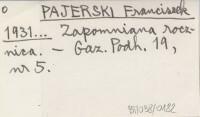 o
PAJERSKI Franciszek
1931... Zapomniana rocz-
nica. - Gaz. Podh. 19,
nr 5.